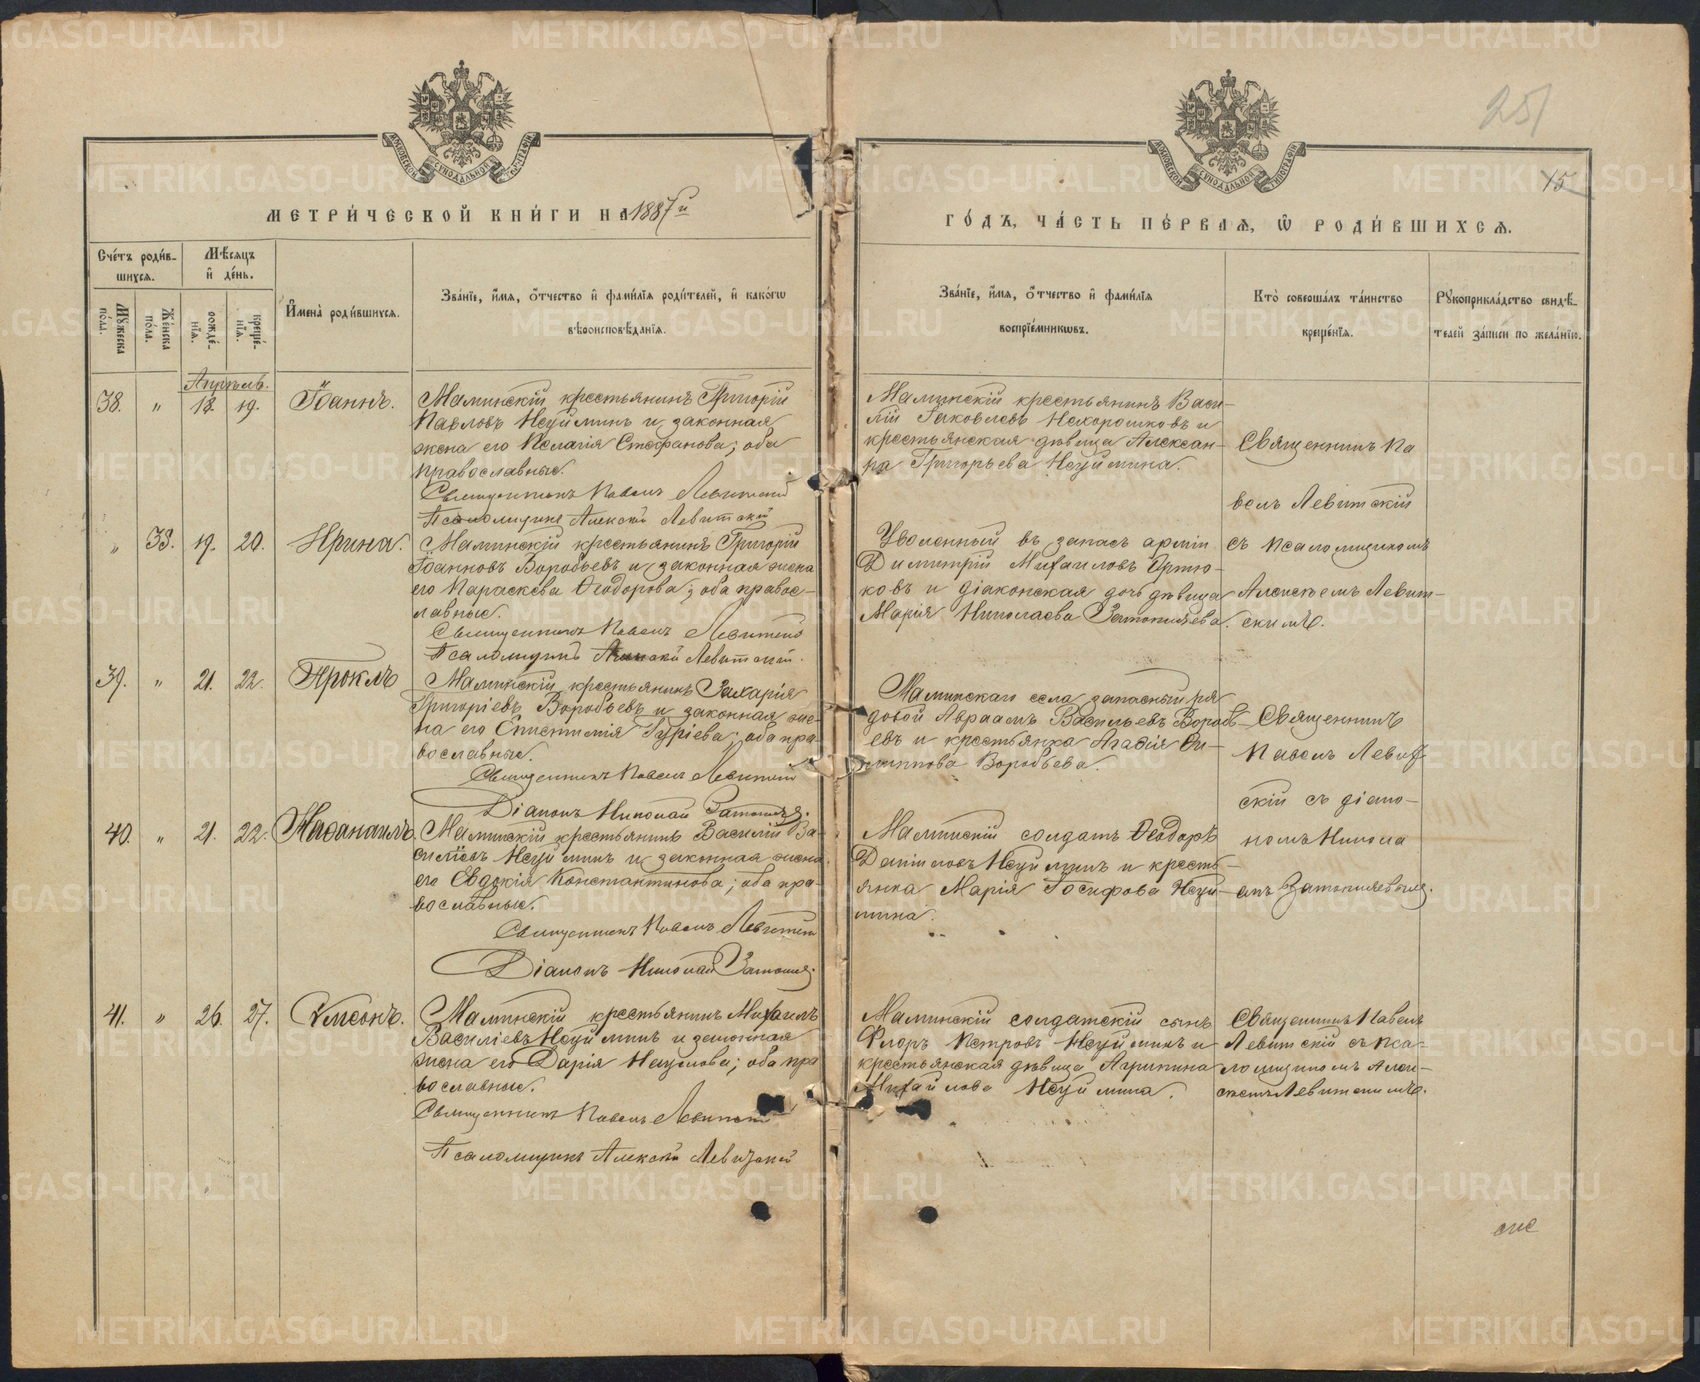 251
15
МЕТРИ́ЧЕСКОЙ КНИ́ГИ НА 1887й
ГО́ДЪ, ЧА́СТЬ ПЕ́РВАЯ, Ѡ РОДИ́ВШИХСЯ.
Сче́тъ роди́в-
шихся.
Мѣ́сяцъ
и҆ де́нь.
Му́жеска
по́ла.
Же́нска
по́ла.
рожде́-
нїя.
креще́-
нїя.
И҆мена̀ роди́вшихся.
Зва́нїе, и҆́мя, ѻ҆́тчество и҆ фами́лїя роди́телей, и҆ како́гѡ
вѣроисповѣ́данїя.
Зва́нїе, и҆́мя, ѻ҆́тчество и҆ фами́лїя
воспрїе́мникѡвъ.
Кто̀ соверша́лъ та́инство
креще́нїя.
Рꙋкоприкла́дство свидѣ́-
телей за́писи по жела́нїю.
Апрѣль.
38. " 18. 19. Іоаннъ.
Маминскій крестьянинъ Григорій
Павловъ Неуйминъ и законная
жена его Пелагія Стефанова; оба
православные.
Священникъ Павелъ Левитскій
Псаломщикъ Алексѣй Левитскій
Маминскій крестьянинъ Васи-
лій Іаковлевъ Нехорошковъ и
крестьянская дѣвица Алексан-
ра Григорьева Неуймина.
Священникъ Па
велъ Левитскій
съ псаломщикомъ
Алексѣемъ Левит-
скимъ.
" 33. 19. 20. Ирина.
Маминскій крестьянинъ Григорій
Іоанновъ Воробьевъ и законная жена
его Параскева Ѳеодорова; оба правос-
лавные.
Священникъ Павелъ Левитскій
Псаломщикъ Алексѣй Левитскій.
Уволенный въ запасъ арміи
Димитрій Михаиловъ
ковъ и діаконская дочь дѣвица
Марія Николаева Затопляева.
39. " 21. 22. Проклъ
Маминскій крестьянинъ Захарія
Григоріевъ Воробьевъ и законная же-
на его Епистимія Гуріева; оба пра-
вославные.
Священникъ Павелъ Левитскій
Діаконъ Николай Затопляевъ.
Маминскаго села запасный ря
довой Авраамъ Васильевъ Вороб-
евъ и крестьянка Агафія Фи-
липпова Воробьева.
Священникъ
Павелъ Левит
скій съ діако-
номъ Никола
емъ Затопляевымъ.
40. " 21. 22. Наѳанаилъ.
Маминскій крестьянинъ Василій Ва-
силіевъ Неуйминъ и законная жена
его Евдокія Константинова; оба пра-
вославные.
Священникъ Павелъ Левитскій
Діаконъ Николай Затопляевъ.
Маминскій солдатъ Ѳеодоръ
Даніиловъ Неуйминъ и кресть-
янка Марія Іосифова Неуй-
мина.
41. " 26. 27. Сѵмеонъ.
Маминскій крестьянинъ Михаилъ
Василіевъ Неуйминъ и законная
жена его Дарія Наумова; оба пра
вославные.
Священникъ Павелъ Левитскій
Псаломщикъ Алексѣй Левитскій
Маминскій солдатскій сынъ
Флоръ Петровъ Неуйминъ и
крестьянская дѣвица Агрипина
Михайлова Неуймина.
Священникъ Павелъ
Левитскій съ пса-
ломщикомъ Алек-
сѣемъ Левитскимъ.
METRIKI.GASO-URAL.RU